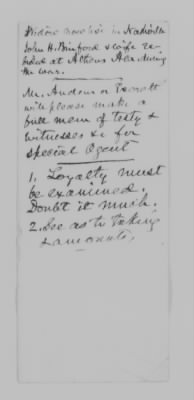 Widow now lives in Nashville
John H. Binford & wife re-
sided at Athens Ala. during
the war.
Mr. Andrew or
will please make a
full mem of testy &
witnesses &c for
special Agent
1. Loyalty must
be examined.
Doubt it much.
2. See as to taking
& amounts,